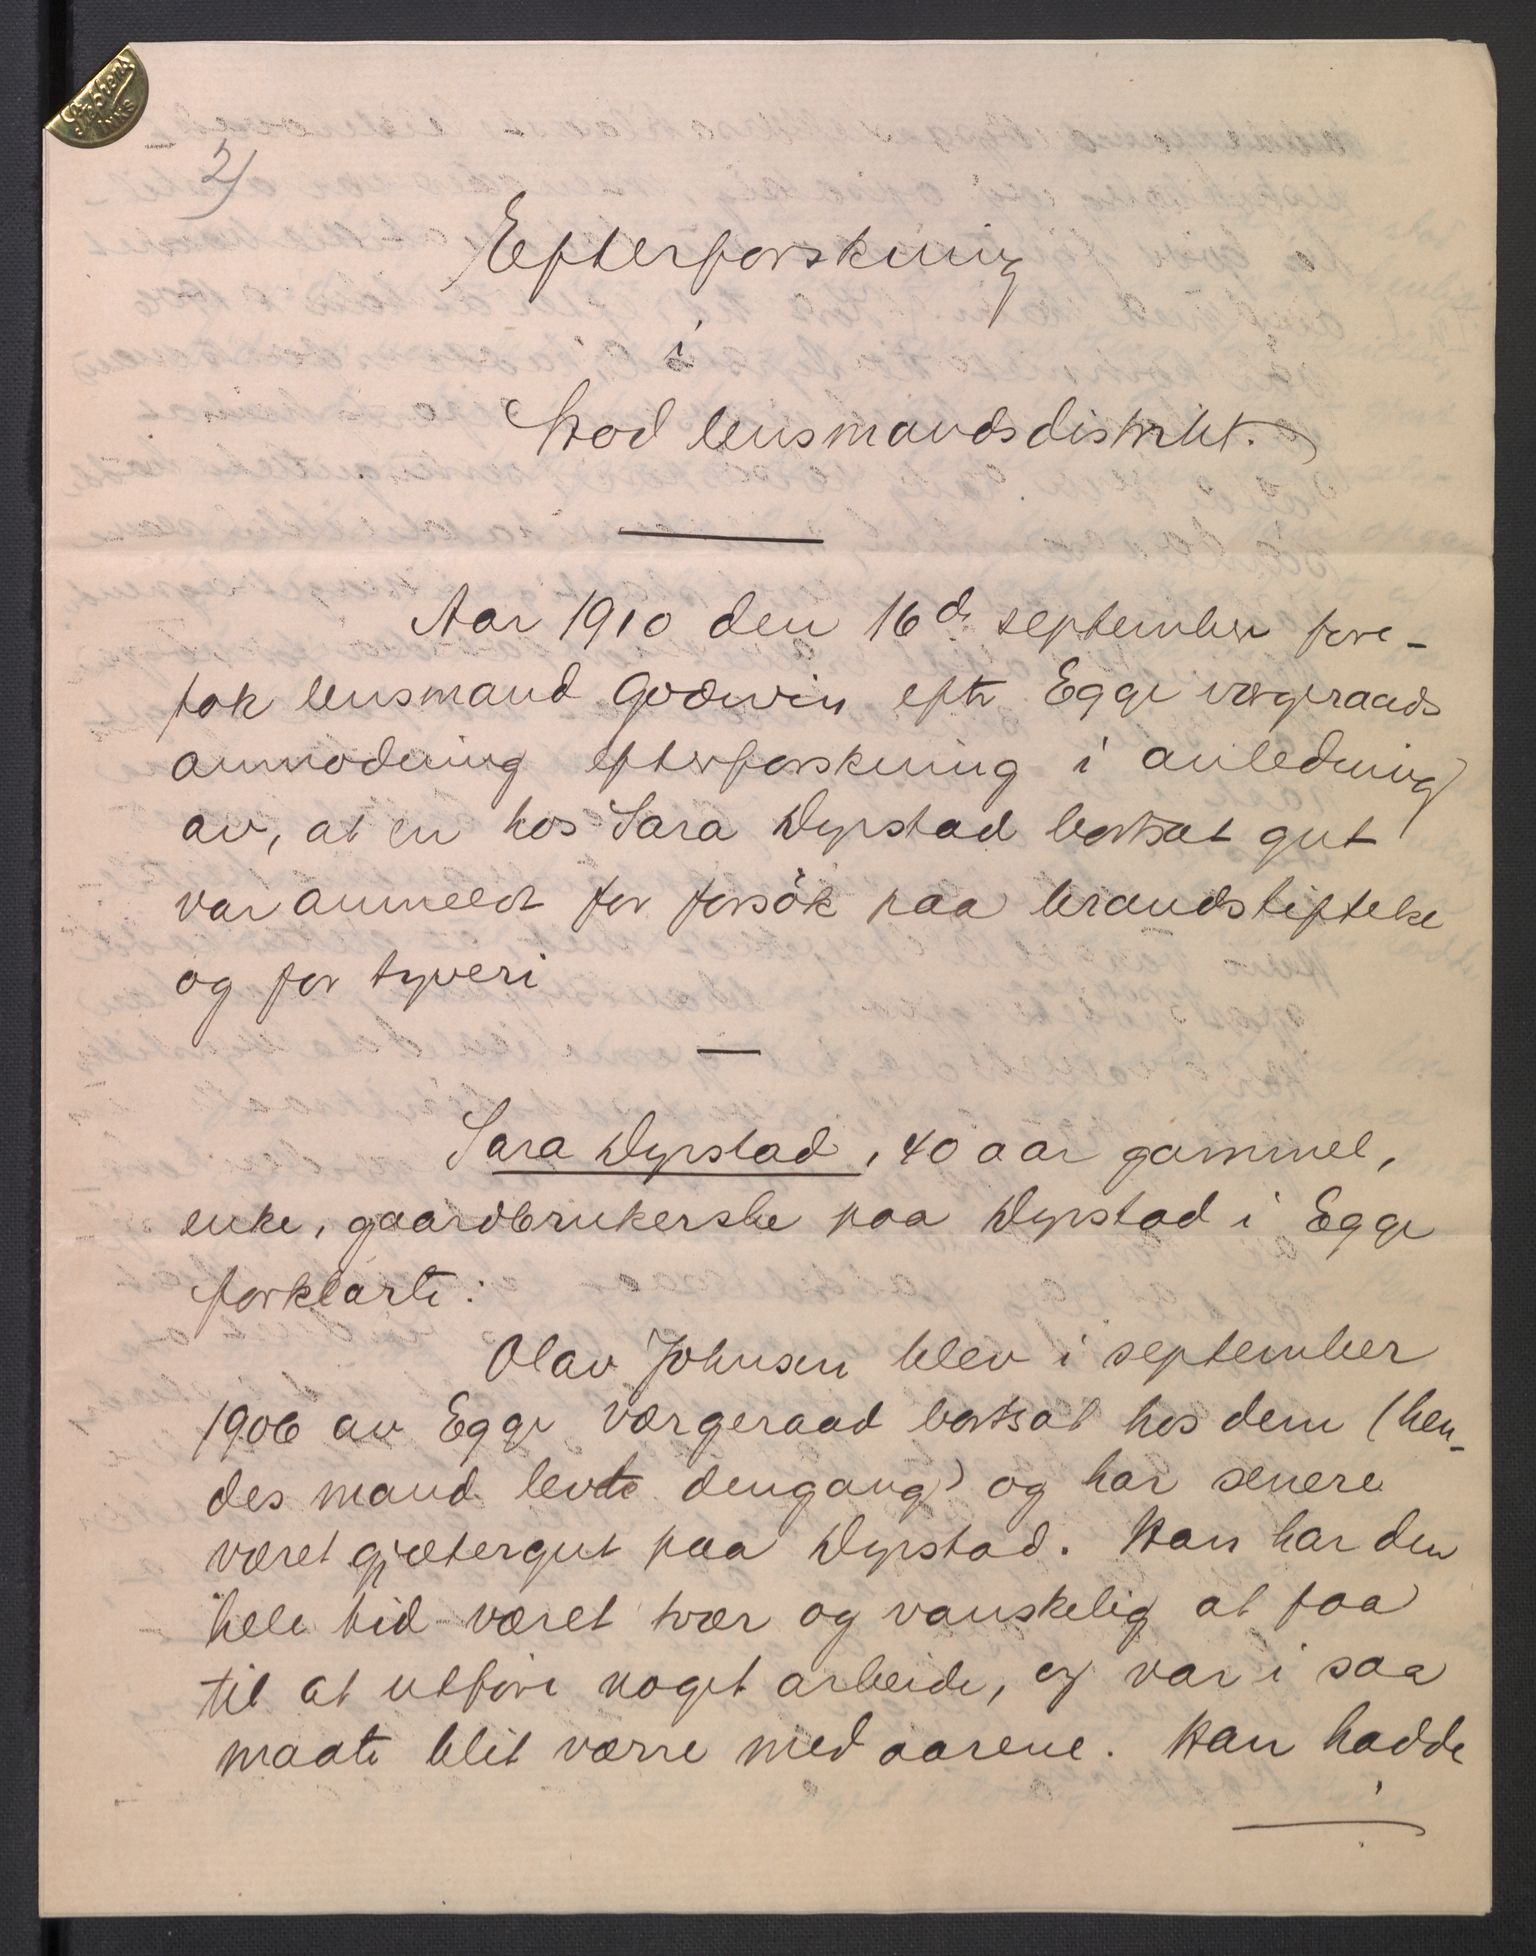 Stephens
INKS
2)
Efterforskning
i
Stod lensmandsdistrikt.
Aar 1910 den 16de september fore-
tok lensmand Godwin efter Egge vergeraads
anmodning efterforskning i anledning
av, at en hos Sara Dyrstad bortsat gut
var anmeldt for forsøk paa brandstiftelse
og for tyveri
Sara Dyrstad, 40 aar gammel,
enke, gaardbrukerske paa Dyrstad i Egge
forklarte:
Olav Johnsen blev i september
1906 av Egge værgeraad bortsat hos dem (hen-
des mand levde dengang) og har senere
været gjætergut paa Dyrstad. Han har den
hele tid været tvær og vanskelig at faa
til at utføre noget arbeide, og var i saa
maate blit værre med aarene. Han hadde